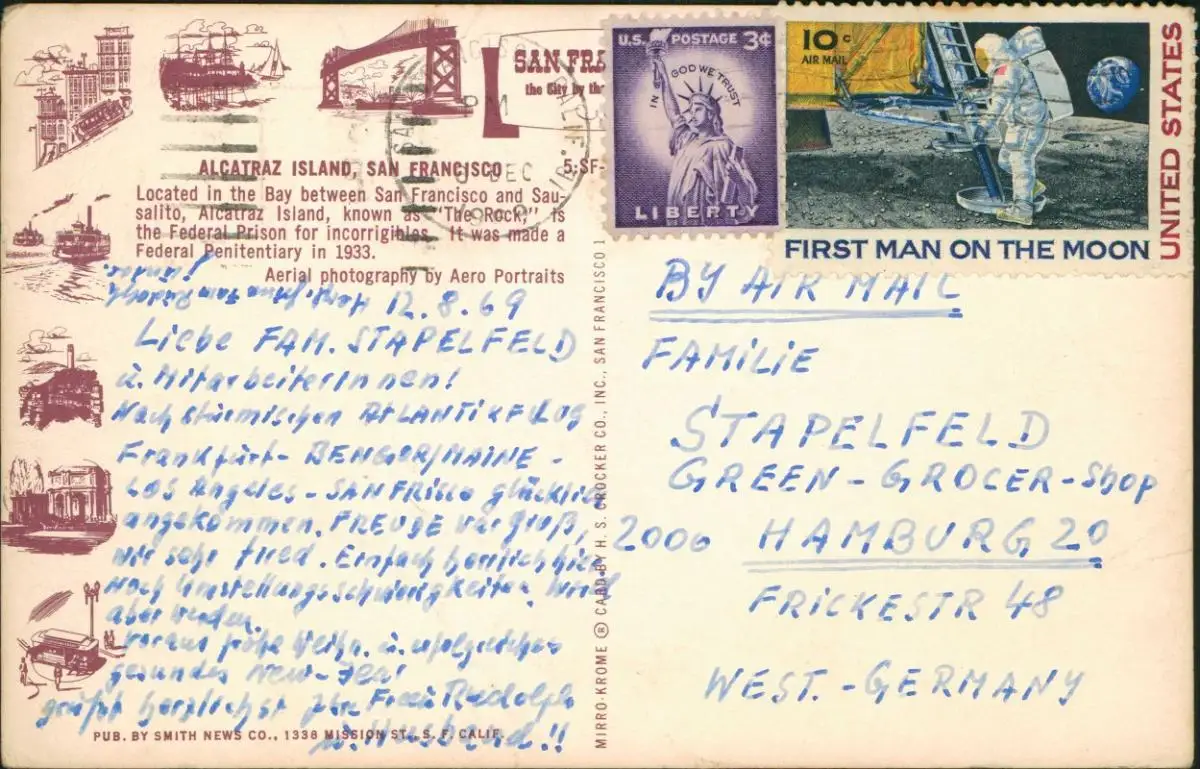 SAN FRA
the City by the
U.S. POSTAGE 3¢
IN GOD WE TRUST
LIBERTY
10c
AIR MAIL
UNITED STATES
FIRST MAN ON THE MOON
PM
DEC
ALCATRAZ ISLAND, SAN FRANCISCO 5-SF-
Located in the Bay between San Francisco and Sau-
salito, Alcatraz Island, known as "The Rock," is
the Federal Prison for incorrigibles. It was made a
Federal Penitentiary in 1933.
Aerial photography by Aero Portraits
12.8.69
Liebe FAM. STAPELFELD
u. Mitarbeiterinnen!
Nach stürmischen ATLANTIKFLUG
Frankfurt - BENGOR/MAINE -
Los Angeles - SAN FRISCO glücklich
angekommen. FREUDE war groß,
wir sehr müd. Einfach herrlich hier.
Noch Umstellungsschwierigkeiten. Wird
aber werden.
Voraus frohe Weihn. u. erfolgreiches
gesundes New-Year!
grüßt herzlichst Ihre Frau Rudolph
u. Husband!!
PUB. BY SMITH NEWS CO., 1336 MISSION ST., S. F. CALIF.
MIRRO-KROME ® CARD BY H. S. CROCKER CO., INC., SAN FRANCISCO 1
BY AIR MAIL
FAMILIE
STAPELFELD
GREEN-GROCER-Shop
2000 HAMBURG 20
FRICKESTR 48
WEST.-GERMANY